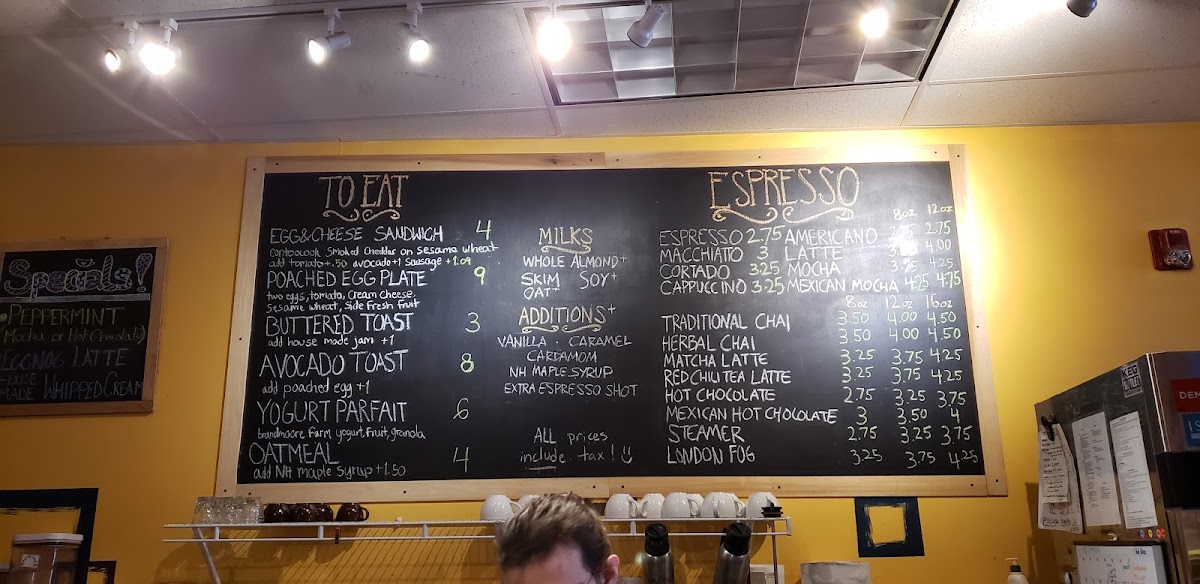 Specials!
PEPPERMINT
(Mocha or Hot Chocolate)
EGGNOG LATTE
HOUSE MADE WHIPPED CREAM
TO EAT
EGG&CHEESE SANDWICH 4
Contoocook Smoked Cheddar on sesame wheat
add tomato+.50 avocado+1 sausage+1.09
POACHED EGG PLATE 9
two eggs, tomato, Cream Cheese,
Sesame wheat, Side Fresh fruit
BUTTERED TOAST 3
add house made jam +1
AVOCADO TOAST 8
add poached egg +1
YOGURT PARFAIT 6
brandmoore Farm yogurt, Fruit, granola
OATMEAL 4
add NH maple syrup +1.50
MILKS
WHOLE ALMOND+
SKIM SOY+
OAT+
ADDITIONS+
VANILLA · CARAMEL
CARDAMOM
NH MAPLE SYRUP
EXTRA ESPRESSO SHOT
ALL prices
include tax!
ESPRESSO
8oz 12oz
ESPRESSO 2.75 AMERICANO 2.75
MACCHIATO 3 LATTE 4.00
CORTADO 3.25 MOCHA 4.25
CAPPUCCINO 3.25 MEXICAN MOCHA 4.25 4.75
8oz 12oz 16oz
TRADITIONAL CHAI 3.50 4.00 4.50
HERBAL CHAI 3.50 4.00 4.50
MATCHA LATTE 3.25 3.75 4.25
RED CHIU TEA LATTE 3.25 3.75 4.25
HOT CHOCOLATE 2.75 3.25 3.75
MEXICAN HOT CHOCOLATE 3 3.50 4
STEAMER 2.75 3.25 3.75
LONDON FOG 3.25 3.75 4.25
KEG
DEM